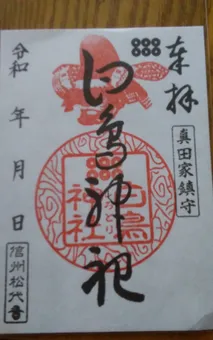 奉拝
真田家鎮守
白鳥神社
白鳥神社
令和 年 月 日
信州松代